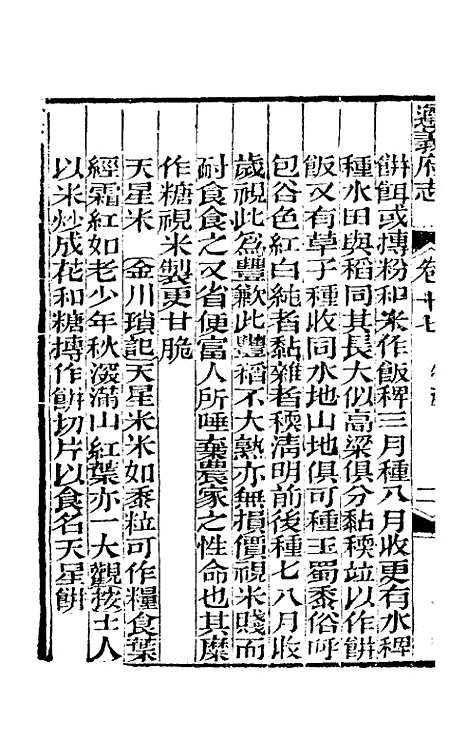 遵義府志
卷十七
二
餠餌或摶粉和米作飯稗三月種八月收更有水稗
種水田與稻同其長大似高粱俱分黏稬竝以作餠
飯又有草子種收同水地山地俱可種玉蜀黍俗呼
包谷色紅白純者黏雜者稬淸明前後種七八月收
歲視此爲豐歉此豐稻不大熟亦無損價視米賤而
耐食食之又省便富人所唾棄農家之性命也其縻
作糖視米製更甘脆
天星米　金川瑣記天星米米如黍粒可作糧食葉
經霜紅如老少年秋深滿山紅葉亦一大觀按土人
以米炒成花和糖摶作餠切片以食名天星餠